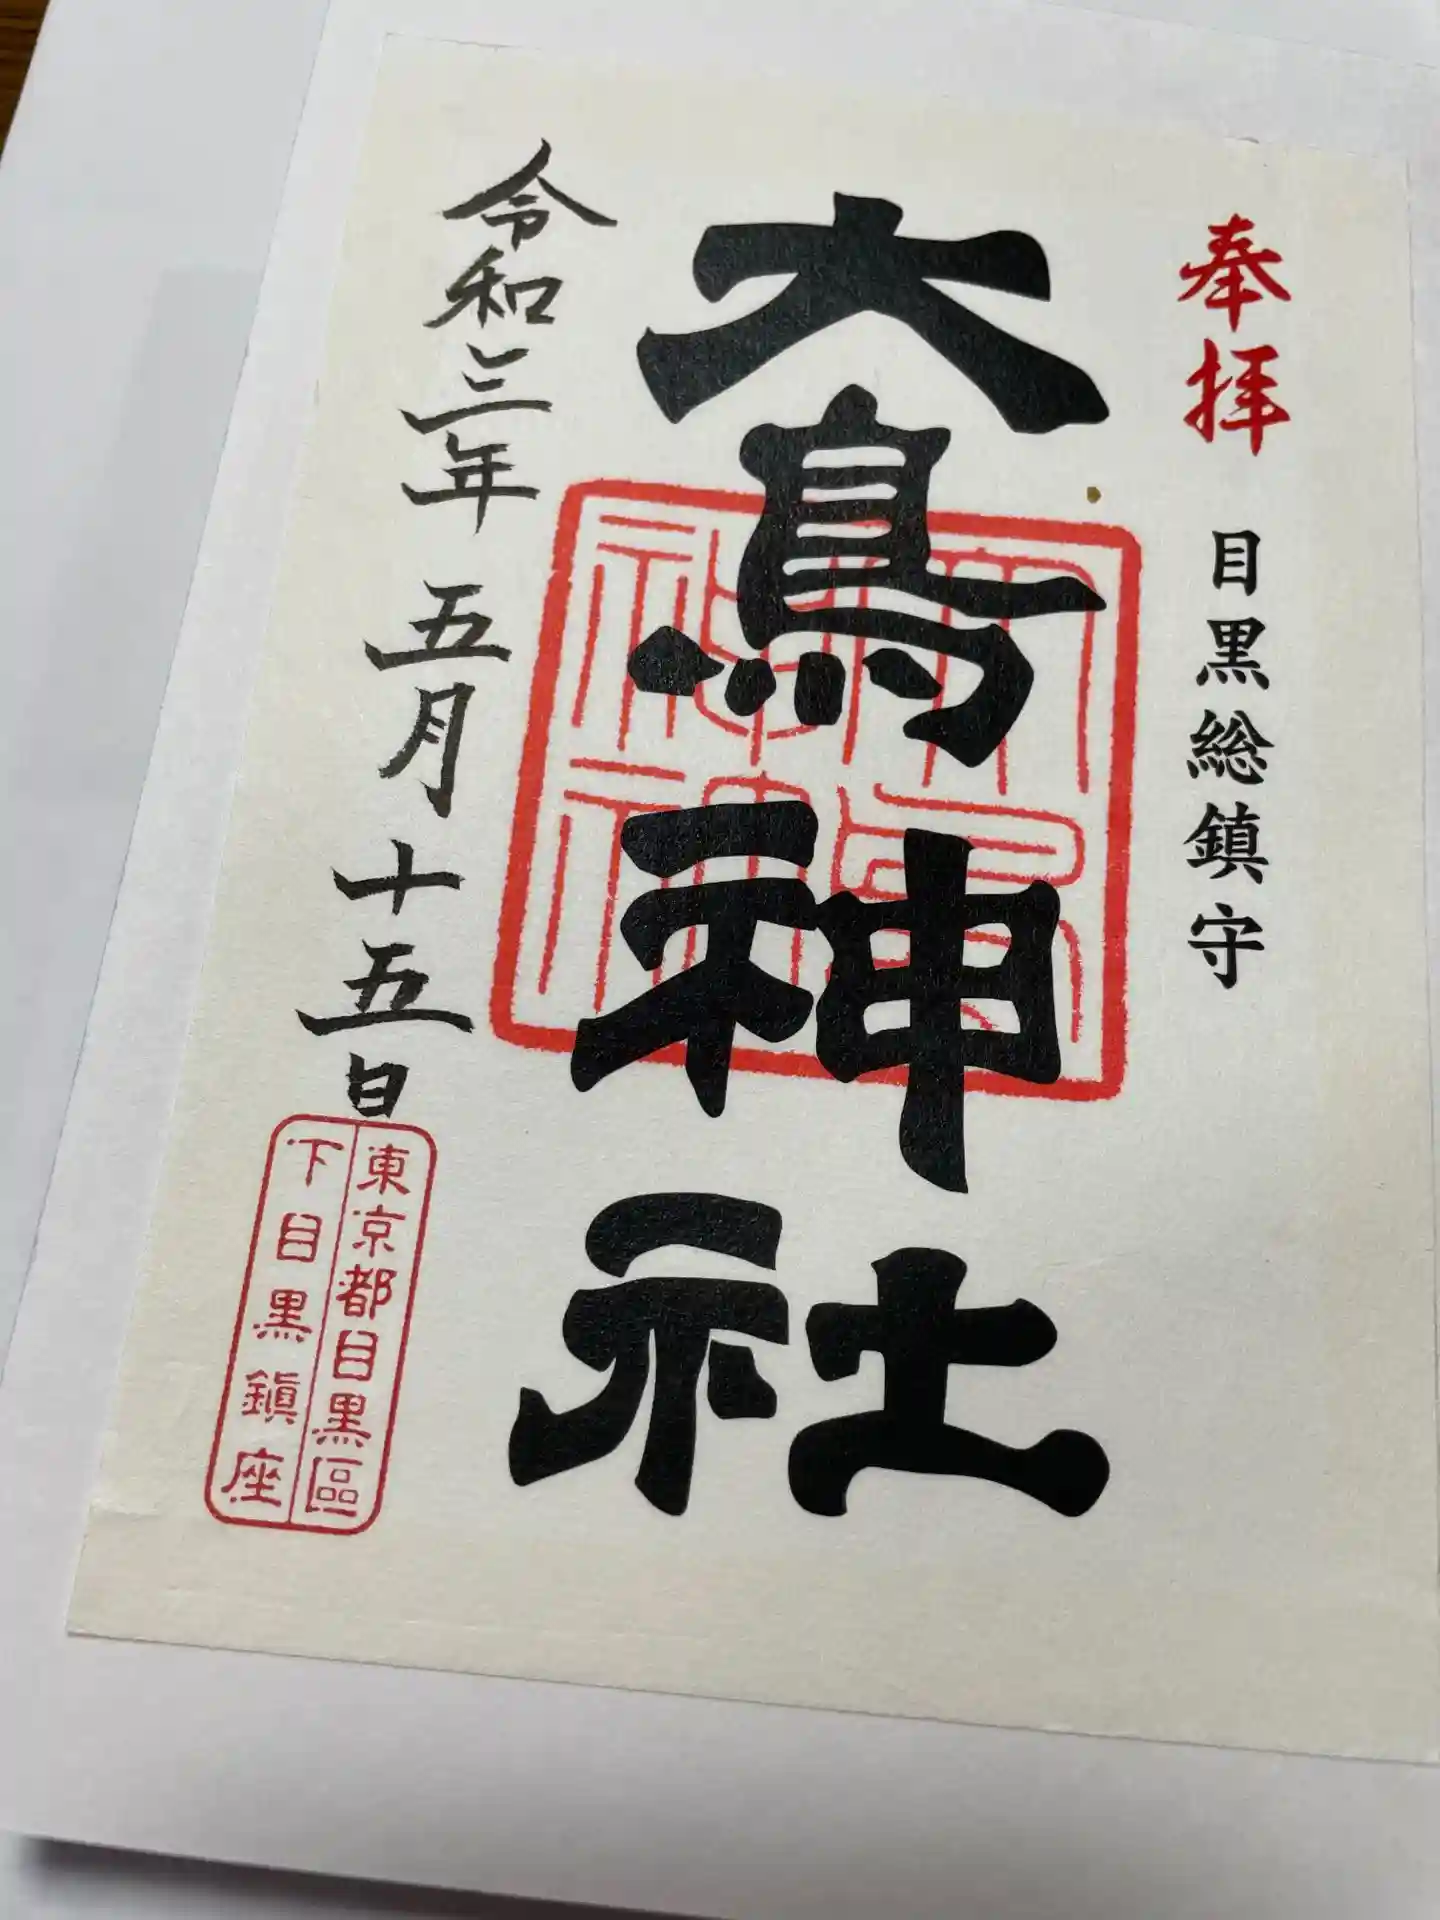 奉拝
目黒総鎮守
大鳥神社
大鳥神社
令和三年 五月十五日
東京都目黒區
下目黒鎭座